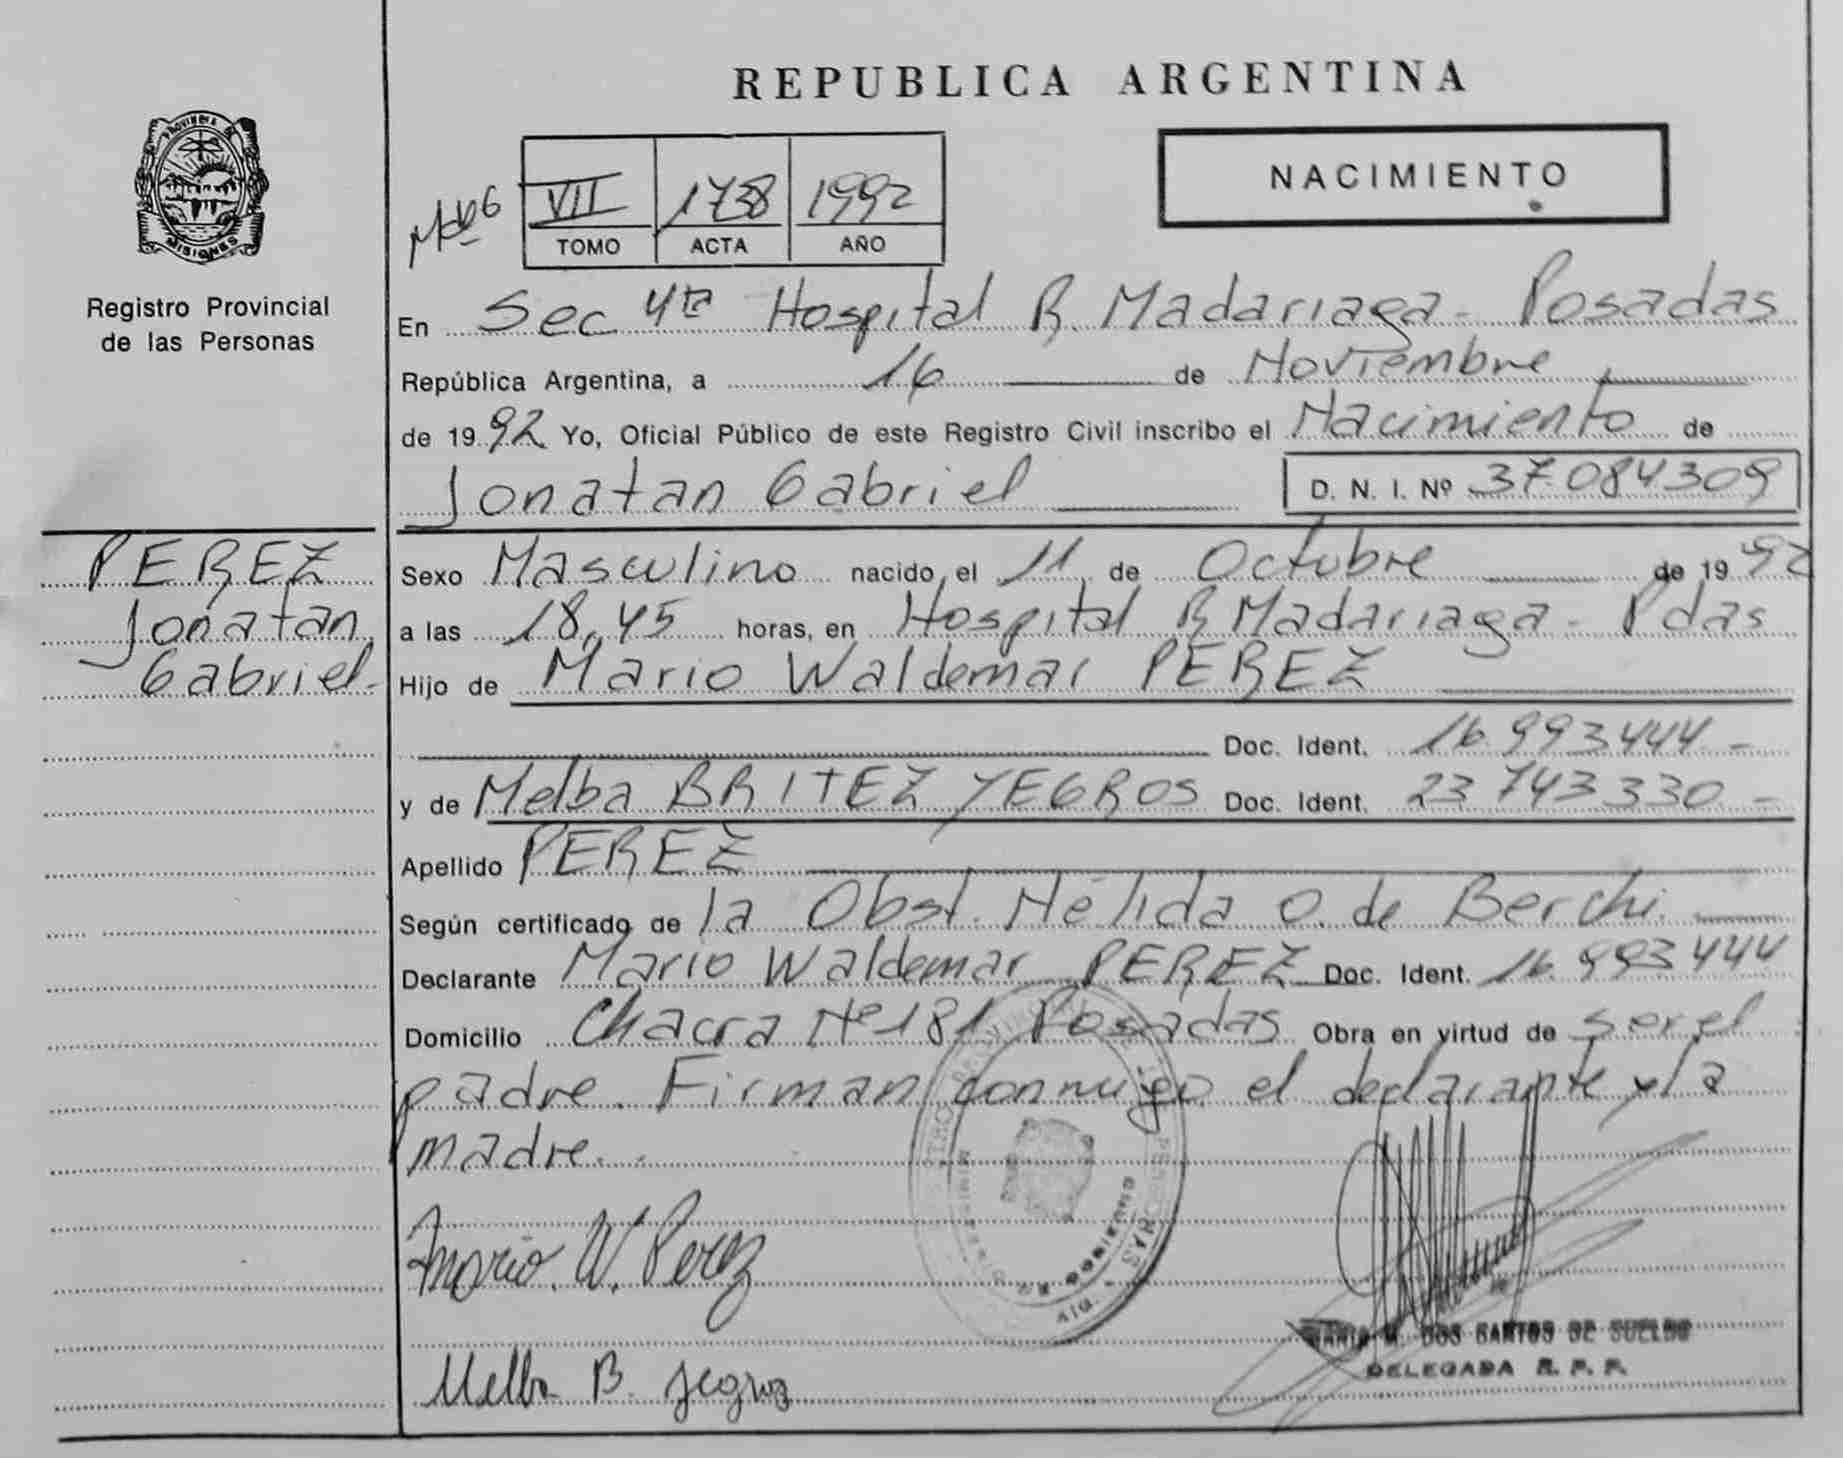 REPUBLICA ARGENTINA
PROVINCIA DE
MISIONES
Registro Provincial
de las Personas
VII 1738 1992
TOMO ACTA AÑO
NACIMIENTO
En Sec 4ta Hospital R. Madariaga - Posadas
República Argentina, a 16 de Noviembre
de 1992 Yo, Oficial Público de este Registro Civil inscribo el Nacimiento de
Jonatan Gabriel D. N. I. Nº 37.084309
PEREZ
Jonatan
Gabriel-
Sexo Masculino nacido, el 11 de Octubre de 1992
a las 18,45 horas, en Hospital R Madariaga - Pdas
Hijo de Mario Waldemar PEREZ
Doc. Ident. 16.993444-
y de Melba BRITEZ YEGROS Doc. Ident. 23 743330-
Apellido PEREZ
Según certificado de la Obst. Nélida O. de Berchi.
Declarante Mario Waldemar PEREZ Doc. Ident. 16.993444
Domicilio Chacra Nº 181 Posadas Obra en virtud de ser el
padre. Firman conmigo el declarante y la
madre.
Mario. W. Perez
MARIA M. DOS SANTOS DE SUELDO
DELEGADA R. P. P.
Melba B. Yegros